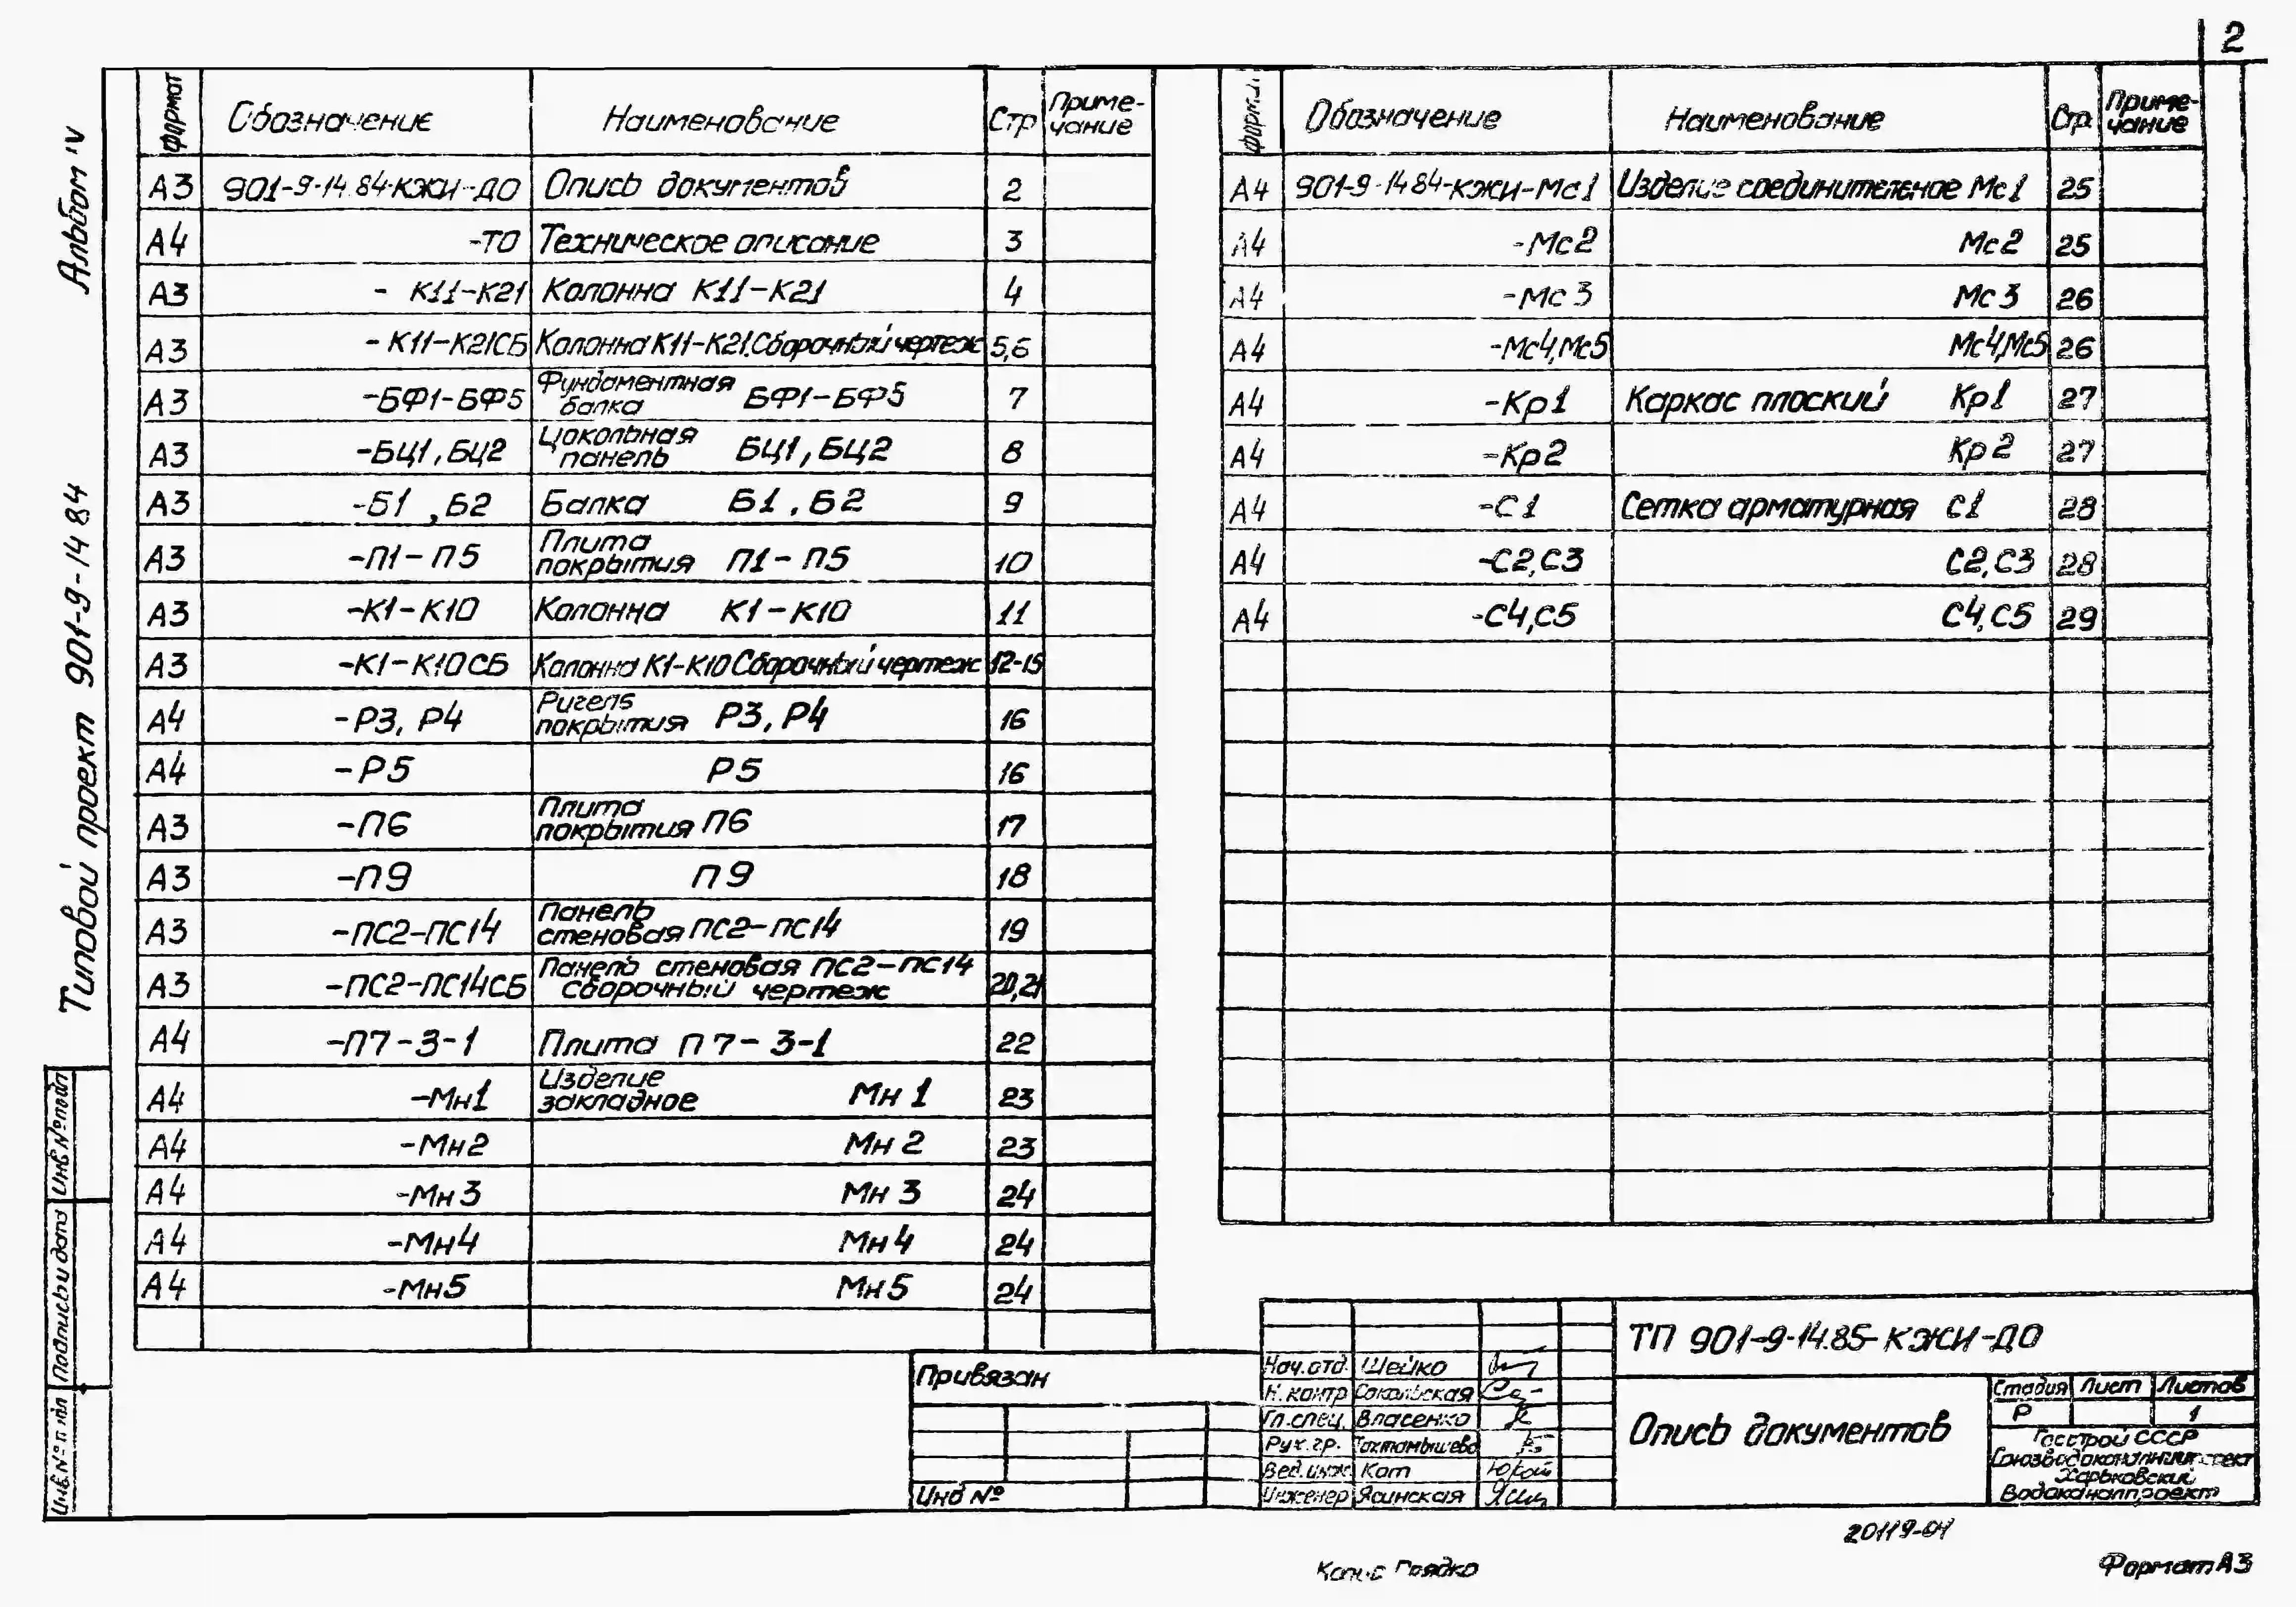 2
Альбом IV
Типовой проект 901-9-14 84
формат Обозначение Наименование Стр Приме-
чание
А3 901-9-14.84-КЖИ-ДО Опись документов 2
А4 -ТО Техническое описание 3
А3 - К11-К21 Колонна К11-К21 4
А3 - К11-К21СБ Колонна К11-К21. Сборочный чертеж 5,6
А3 -БФ1-БФ5 Фундаментная
балка БФ1-БФ5 7
А3 -БЦ1, БЦ2 Цокольная
панель БЦ1, БЦ2 8
А3 -Б1, Б2 Балка Б1, Б2 9
А3 -П1-П5 Плита
покрытия П1-П5 10
А3 -К1-К10 Колонна К1-К10 11
А3 -К1-К10СБ Колонна К1-К10 Сборочный чертеж 12-15
А4 -Р3, Р4 Ригель
покрытия Р3, Р4 16
А4 -Р5 Р5 16
А3 -П6 Плита
покрытия П6 17
А3 -П9 П9 18
А3 -ПС2-ПС14 Панель
стеновая ПС2-ПС14 19
А3 -ПС2-ПС14СБ Панель стеновая ПС2-ПС14
сборочный чертеж 20,21
А4 -П7-3-1 Плита П7-3-1 22
А4 -Мн1 Изделие
закладное Мн 1 23
А4 -Мн2 Мн 2 23
А4 -Мн3 Мн 3 24
А4 -Мн4 Мн4 24
А4 -Мн5 Мн5 24
Обозначение Наименование Стр. Приме-
чание
А4 901-9-14 84-КЖИ-Мс1 Изделие соединительное Мс1 25
А4 -Мс2 Мс2 25
А4 -Мс3 Мс3 26
А4 -Мс4, Мс5 Мс4, Мс5 26
А4 -Кр1 Каркас плоский Кр1 27
А4 -Кр2 Кр2 27
А4 -С1 Сетка арматурная С1 28
А4 -С2, С3 С2, С3 28
А4 -С4, С5 С4, С5 29
Инв № подл
Подпись и дата
Привязан
Инв №
Нач.отд. Шейко
Н.контр Сокольская
Гл.спец. Власенко
Рук.гр.
Вед.инж. Кот
Инженер Ясинская
ТП 901-9-14.85-КЖИ-ДО
Опись документов
Стадия Лист Листов
Р 1
Госстрой СССР
Союзводоканалниипроект
Харьковский
Водоканалпроект
20119-04
Грядко
Формат А3